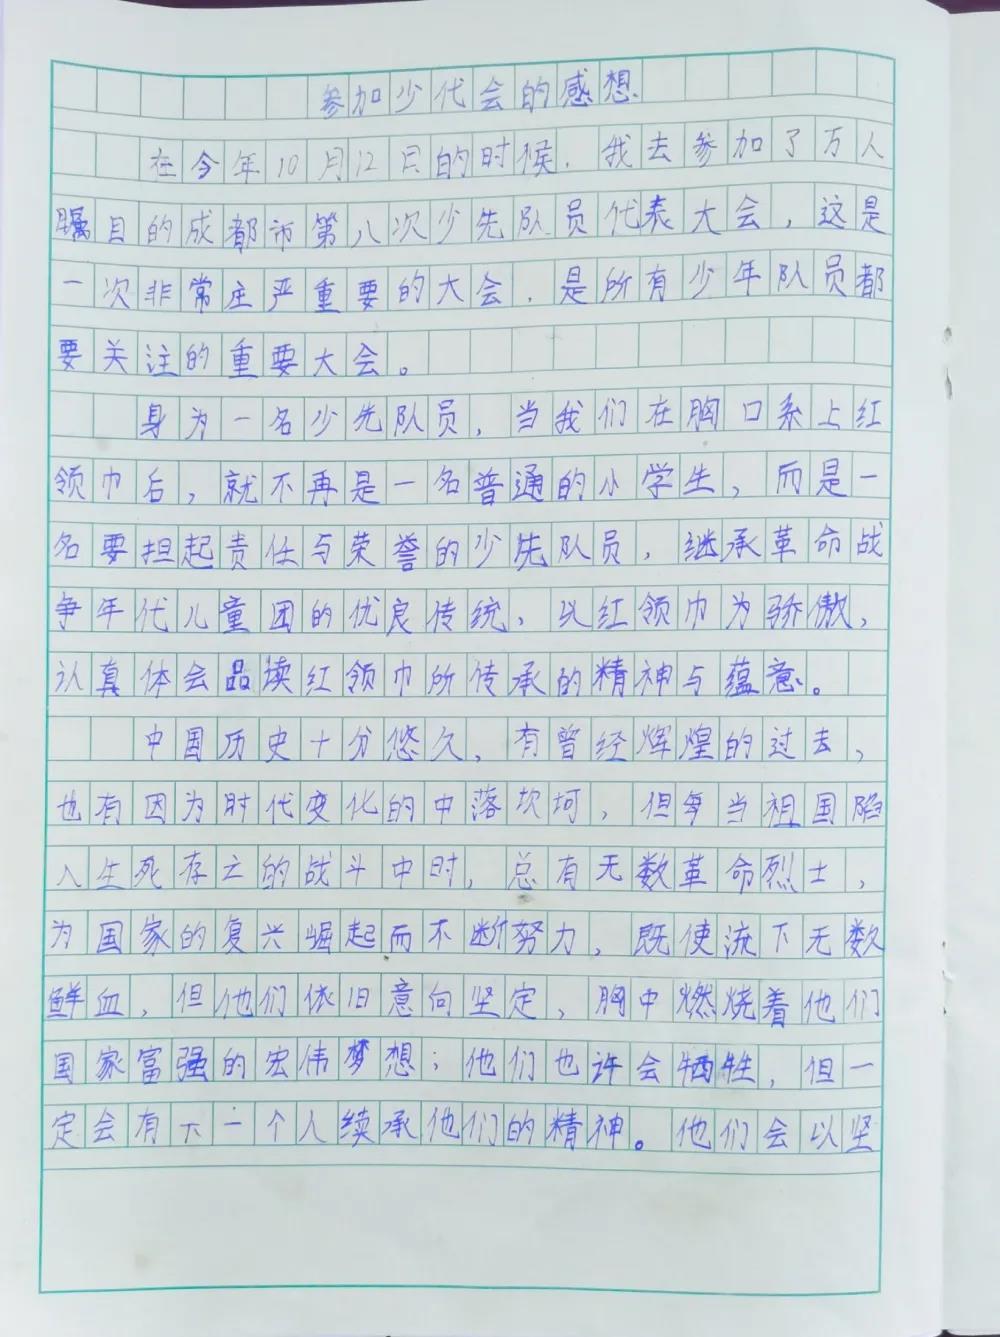 参加少代会的感想
在今年10月12日的时候，我去参加了万人
瞩目的成都市第八次少先队员代表大会，这是
一次非常庄严重要的大会，是所有少年队员都
要关注的重要大会。
身为一名少先队员，当我们在胸口系上红
领巾后，就不再是一名普通的小学生，而是一
名要担起责任与荣誉的少先队员，继承革命战
争年代儿童团的优良传统，以红领巾为骄傲，
认真体会品读红领巾所传承的精神与蕴意。
中国历史十分悠久，有曾经辉煌的过去，
也有因为时代变化的中落坎坷，但每当祖国陷
入生死存亡的战斗中时，总有无数革命烈士，
为国家的复兴崛起而不断努力，既使流下无数
鲜血，但他们依旧意向坚定，胸中燃烧着他们
国家富强的宏伟梦想；他们也许会牺牲，但一
定会有下一个人续承他们的精神。他们会以坚